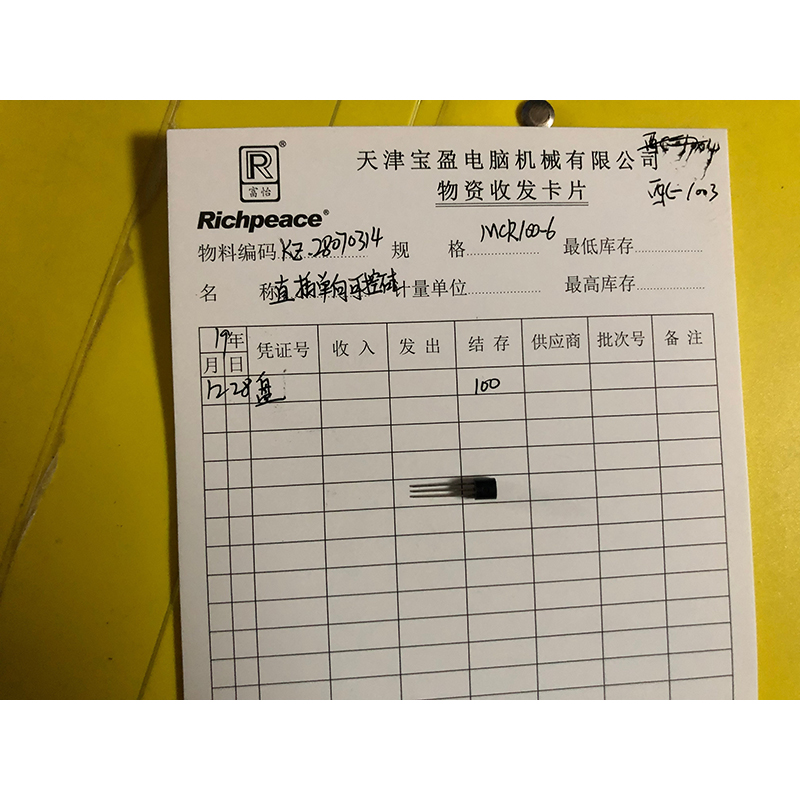 R®
富怡
Richpeace®
天津宝盈电脑机械有限公司
物资收发卡片
西C-1003
物料编码 KZ-28070314 规格 MCR100-6 最低库存
名称 直插单向可控硅 计量单位 最高库存
19年 凭证号 收入 发出 结存 供应商 批次号 备注
月 日
12 28 盘 100